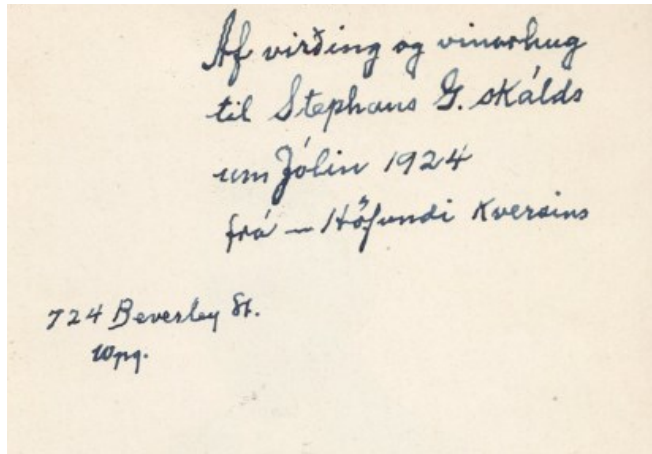 Af virðing og vinarhug
til Stephans G. skálds
um Jólin 1924
frá — Höfundi Kversins
724 Beverley St.
Wpg.